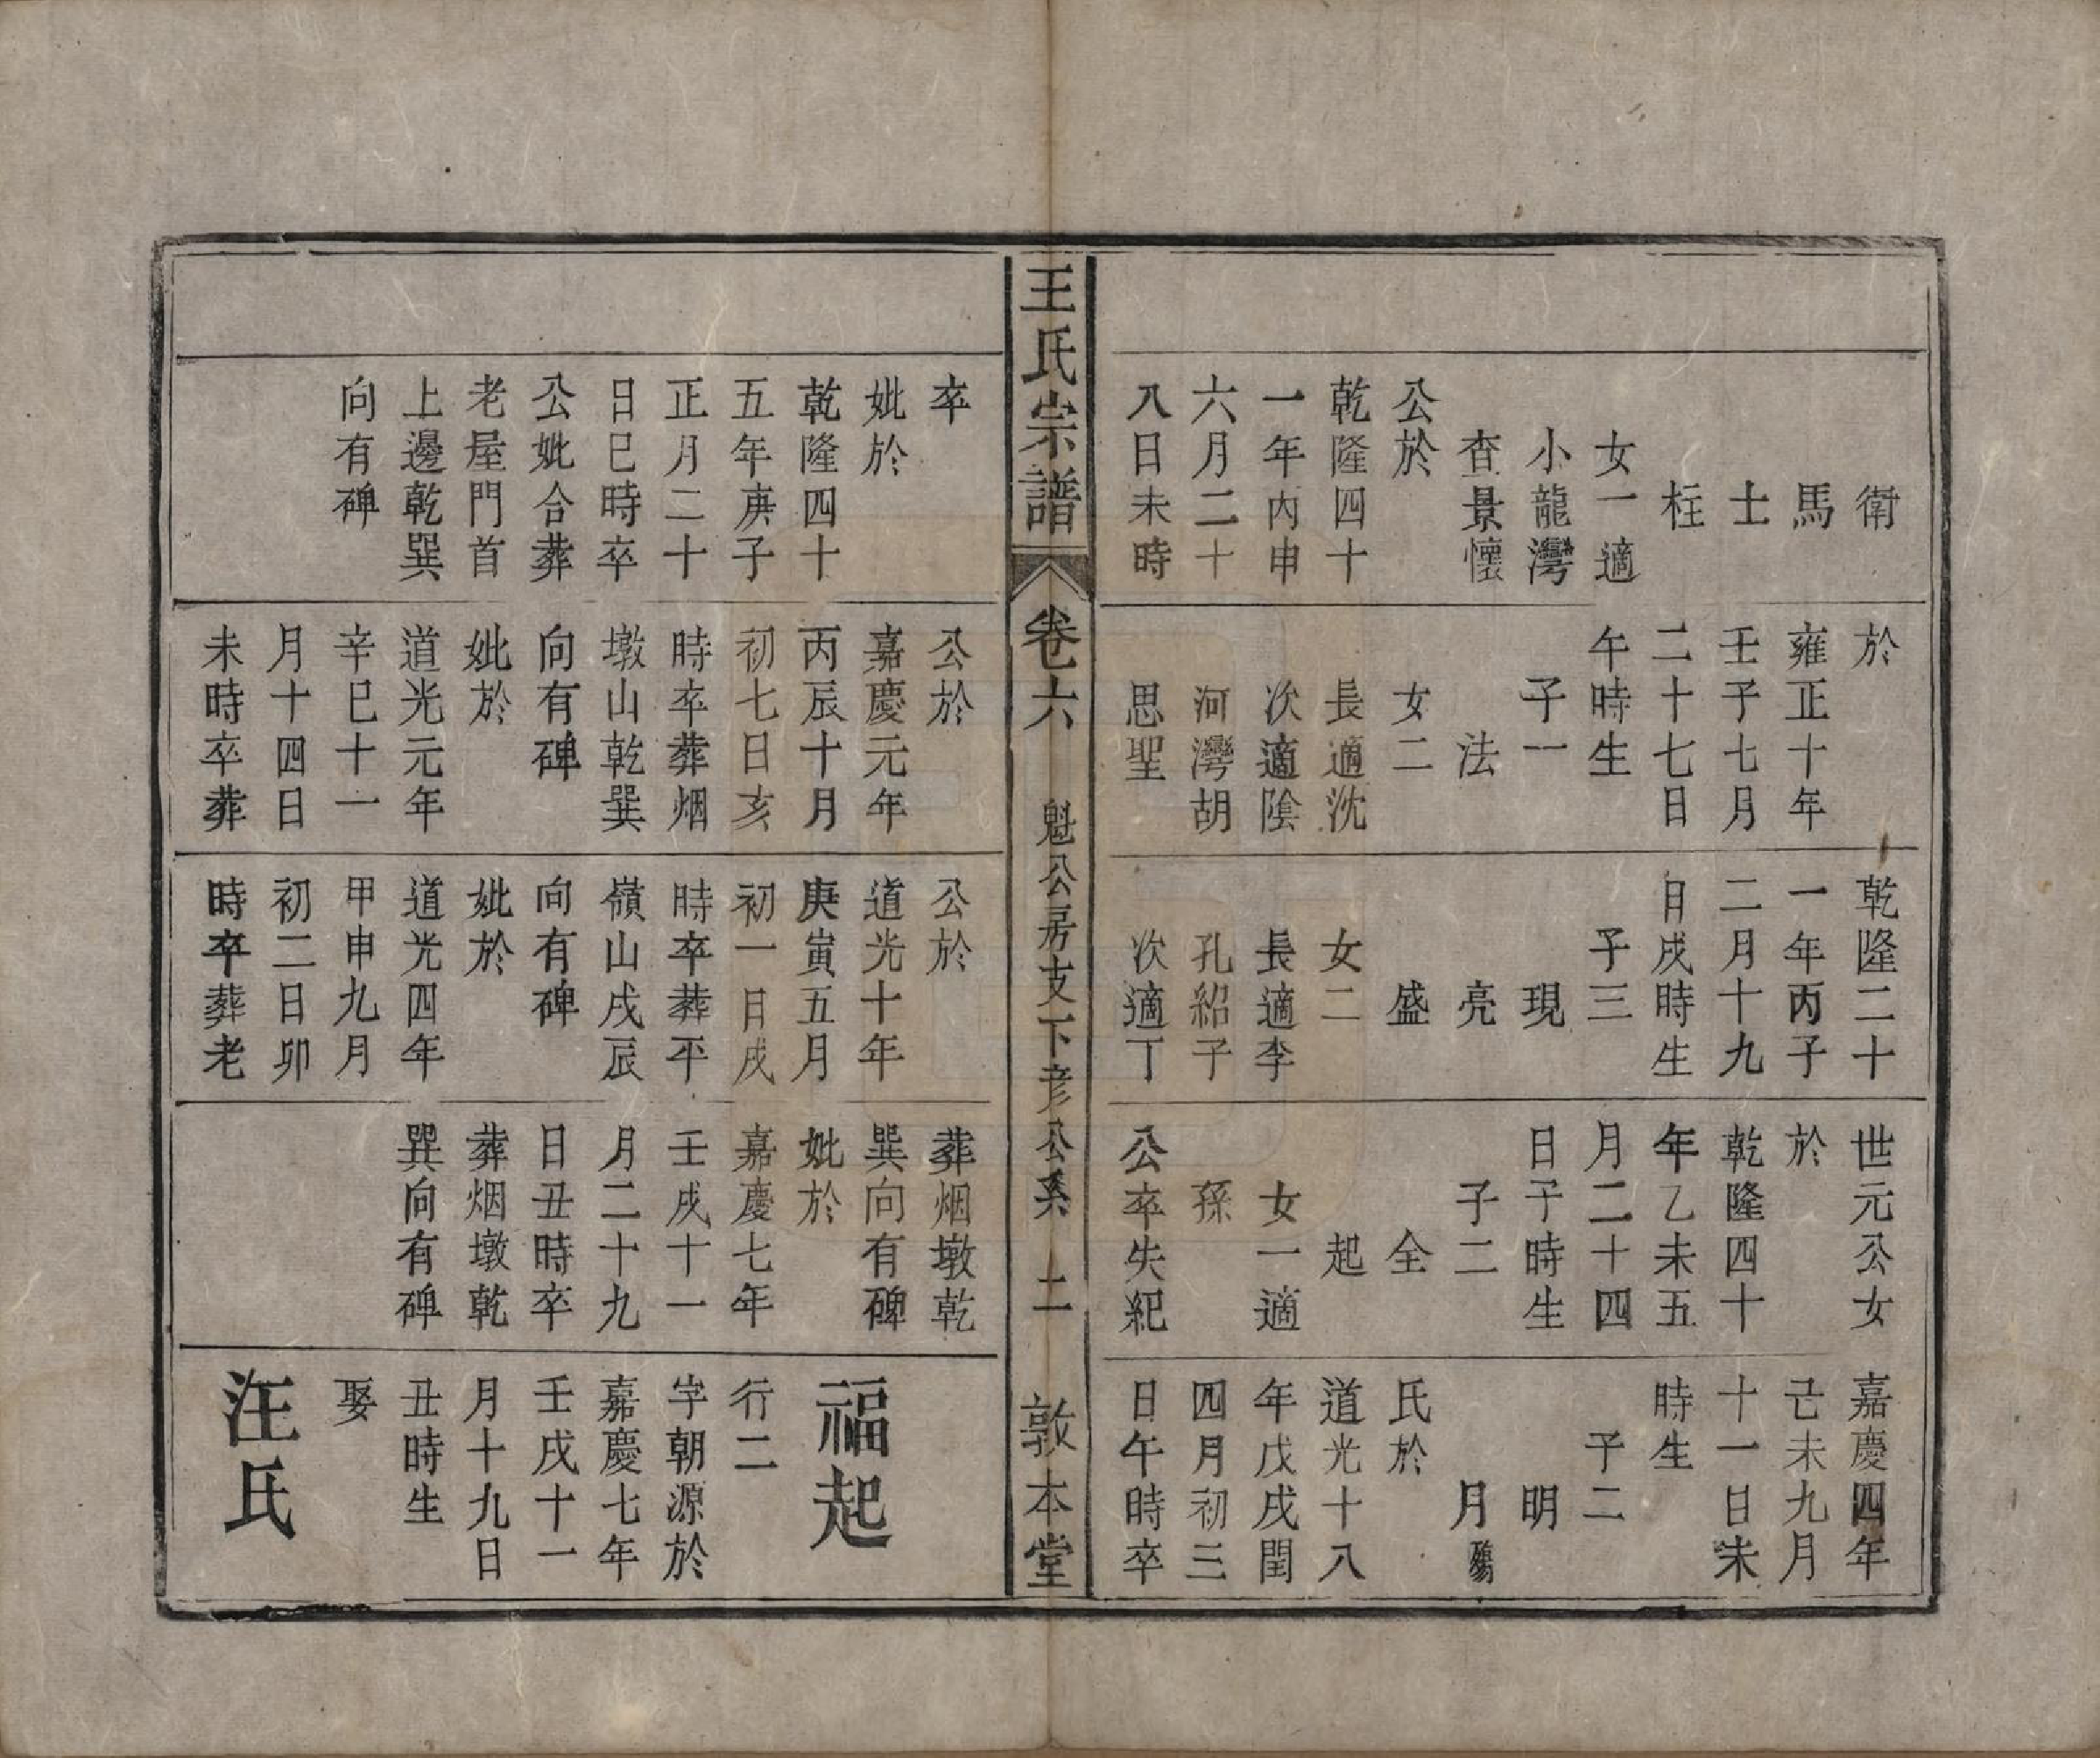 衛
馬
士
柱
女一適
小龍灣
查景懷
公於
乾隆四十
一年丙申
六月二十
八日未時
於
雍正十年
壬子七月
二十七日
午時生
子一
法
女二
長適沈
次適陰
河灣胡
思聖
乾隆二十
一年丙子
二月十九
日戌時生
子三
現
亮
盛
女二
長適李
孔紹子
次適丁
世元公女
於
乾隆四十
年乙未五
月二十四
日子時生
子二
全
起
女一適
孫
公卒失紀
嘉慶四年
己未九月
十一日未
時生
子二
明
月殤
氏於
道光十八
年戊戌閏
四月初三
日午時卒
王氏宗譜
卷六
魁公房支下彦公系
二
敦本堂
卒
妣於
乾隆四十
五年庚子
正月二十
日巳時卒
公妣合葬
老屋門首
上邊乾巽
向有碑
公於
嘉慶元年
丙辰十月
初七日亥
時卒葬烟
墩山乾巽
向有碑
妣於
道光元年
辛巳十一
月十四日
未時卒葬
公於
道光十年
庚寅五月
初一日戌
時卒葬平
嶺山戌辰
向有碑
妣於
道光四年
甲申九月
初二日卯
時卒葬老
葬烟墩乾
巽向有碑
妣於
嘉慶七年
壬戌十一
月二十九
日丑時卒
葬烟墩乾
巽向有碑
福起
行二
字朝源於
嘉慶七年
壬戌十一
月十九日
丑時生
娶
汪氏